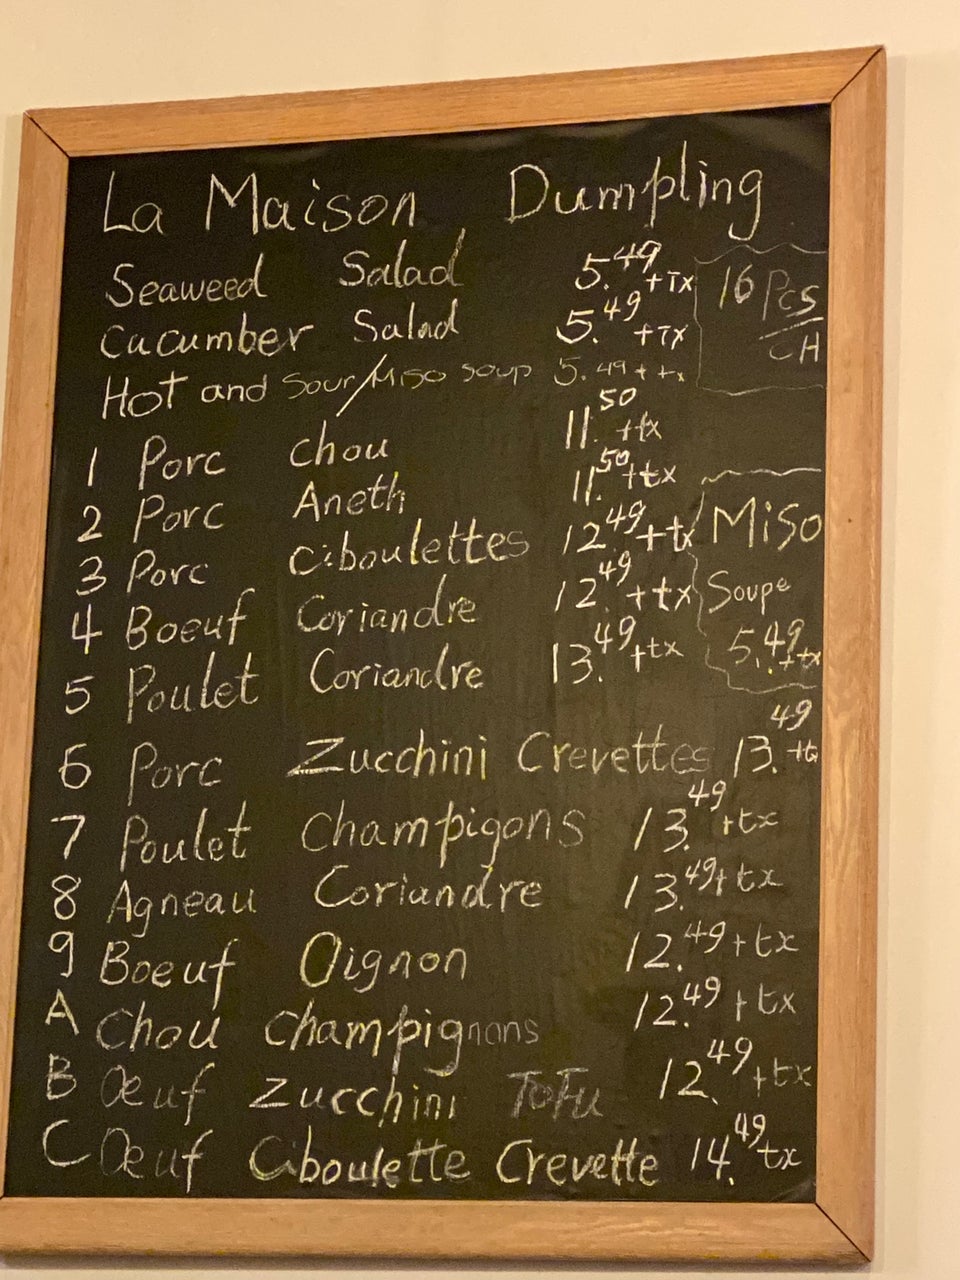 La Maison Dumpling
Seaweed Salad 5.49 +Tx
Cucumber Salad 5.49 +Tx
16 Pcs
CH
Hot and Sour/Miso soup 5.49 + tx
1 Porc Chou 11.50 +tx
2 Porc Aneth 11.50 +tx
3 Porc Ciboulettes 12.49 +tx
4 Boeuf Coriandre 12.49 +tx
5 Poulet Coriandre 13.49 +tx
Miso
Soupe
5.49 +tx
6 Porc Zucchini Crevettes 13.49 +tx
7 Poulet Champigons 13.49 +tx
8 Agneau Coriandre 13.49 + tx
9 Boeuf Oignon 12.49 + tx
A Chou Champignons 12.49 + tx
B Œuf Zucchini ToFu 12.49 +tx
C Œuf Ciboulette Crevette 14.49 tx